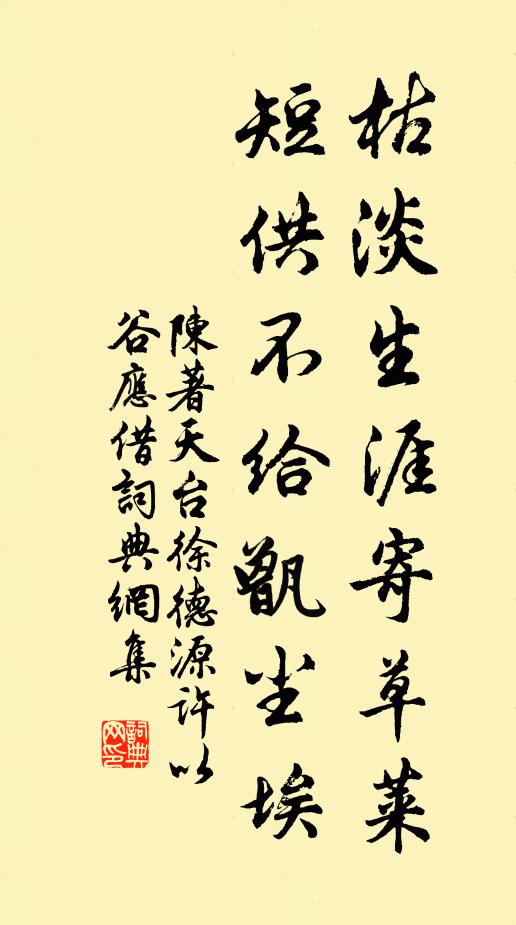 枯淡生涯寄草萊
短供不給甑尘埃
陳著天台徐德源許以
谷應借詞典網集
詞典
网印